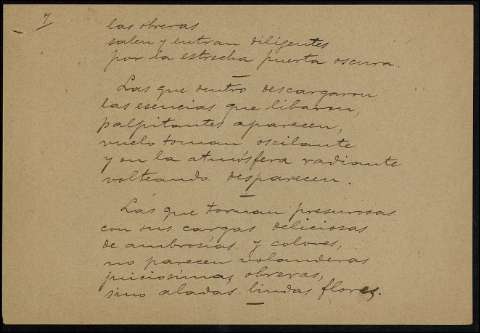 7
las obreras
salen y entran diligentes
por la estrecha puerta oscura.
Las que dentro descargaron
las esencias que libaron,
palpitantes aparecen,
vuelo toman oscilante
y en la atmósfera radiante
volteando desparecen.
Las que tornan presurosas
con sus cargas deliciosas
de ambrosías y colores,
no parecen volanderas
juiciosimas obreras,
sino aladas lindas flores.